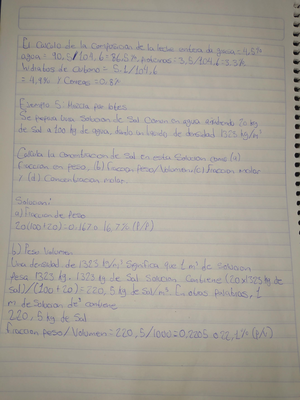 El calculo de la composicion de la leche entera da grasa = 4.5%
agua = 90.5/104.6 = 86.5% Proteinas = 3.5/104.6 = 3.3%
hidratos de carbono = 5.1/104.6
= 4.9% y Cenizas = 0.8%
Ejemplo 5. Mezcla por lotes
Se prepara una Solucion de Sal Comun en agua, añadiendo 20 kg
de Sal a 100 kg de agua, dando un liquido de densidad 1323 kg/m³
Calcular la Concentracion de Sal en esta Solucion como (a)
fraccion en peso, (b) fraccion peso/volumen, (c) fraccion molar
y (d) Concentracion molar.
Solucion:
a) fraccion de Peso
20/(100+20) = 0.167 o 16.7% (P/P)
b) Peso Volumen
Una densidad de 1323 kg/m³ Significa que 1 m³ de solucion
Pesa 1323 kg. 1323 kg de Sal Solucion Contiene (20x1323 kg de
sal)/(100+20) = 220,5 kg de Sal/m³. En otras Palabras, 1
m³ de Solucion contiene
220,5 kg de Sal
Fraccion peso/Volumen = 220,5/1000 = 0.2205 o 22,1% (P/V)